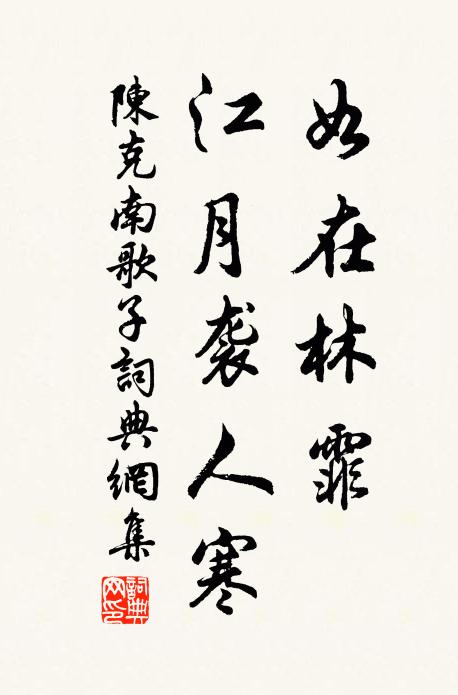 如在林霏
江月袭人寒
陳克南歌子詞典網集
詞典网印